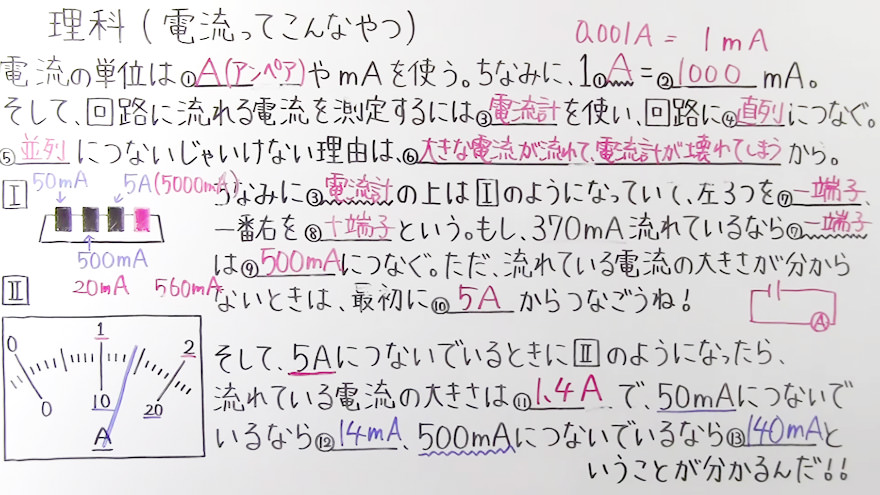 理科(電流ってこんなやつ)
0.001A = 1mA
電流の単位は①A(アンペア)やmAを使う。ちなみに、1①A=②1000mA。
そして、回路に流れる電流を測定するには③電流計を使い、回路に④直列につなぐ。
⑤並列につないじゃいけない理由は、⑥大きな電流が流れて、電流計が壊れてしまうから。
I
50mA
5A(5000mA)
500mA
ちなみに③電流計の上はIのようになっていて、左3つを⑦－端子、
一番右を⑧＋端子という。もし、370mA流れているなら⑦－端子
は⑨500mAにつなぐ。ただ、流れている電流の大きさが分から
ないときは、最初に⑩5Aからつなごうね!
A
II
20mA 560mA
0 1 2
0 10 20
A
そして、5AにつないでいるときにIIのようになったら、
流れている電流の大きさは⑪1.4Aで、50mAにつないで
いるなら⑫14mA、500mAにつないでいるなら⑬140mAと
いうことが分かるんだ!!